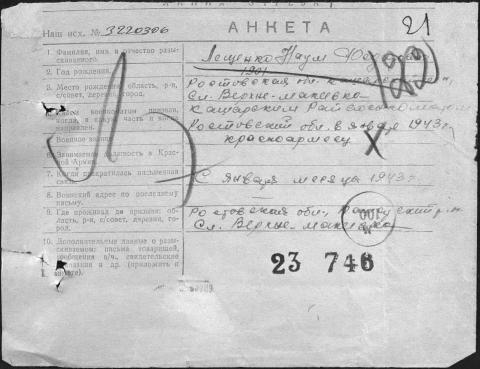 АНКЕТА
21
Наш исх. № 3220306
1. Фамилия, имя и отчество разыскиваемого.
Лещенко Наум
2. Год рождения.
1901
3. Место рождения: область, р-н, с/совет, деревня, город.
Ростовская обл.
сл. Верне-макеевка
военкоматом призван,
когда, в какую часть и когда направлен.
Кашарским Райвоенкоматом
Ростовской обл. в январе 1943 г.
Военное звание.
красноармеец
6. Занимаемая должность в Красной Армии.
7. Когда прекратилась письменная связь.
С января месяца 1943 г.
8. Воинский адрес по последнему письму.
9. Где проживал до призыва: область, р-н, с/совет, деревня, город.
Ростовская обл.,
Сл. Верне-макеевка
10. Дополнительные данные о разыскиваемом: письма товарищей, сообщения в/ч, свидетельские показания и др. (приложить к анкете).
23 746